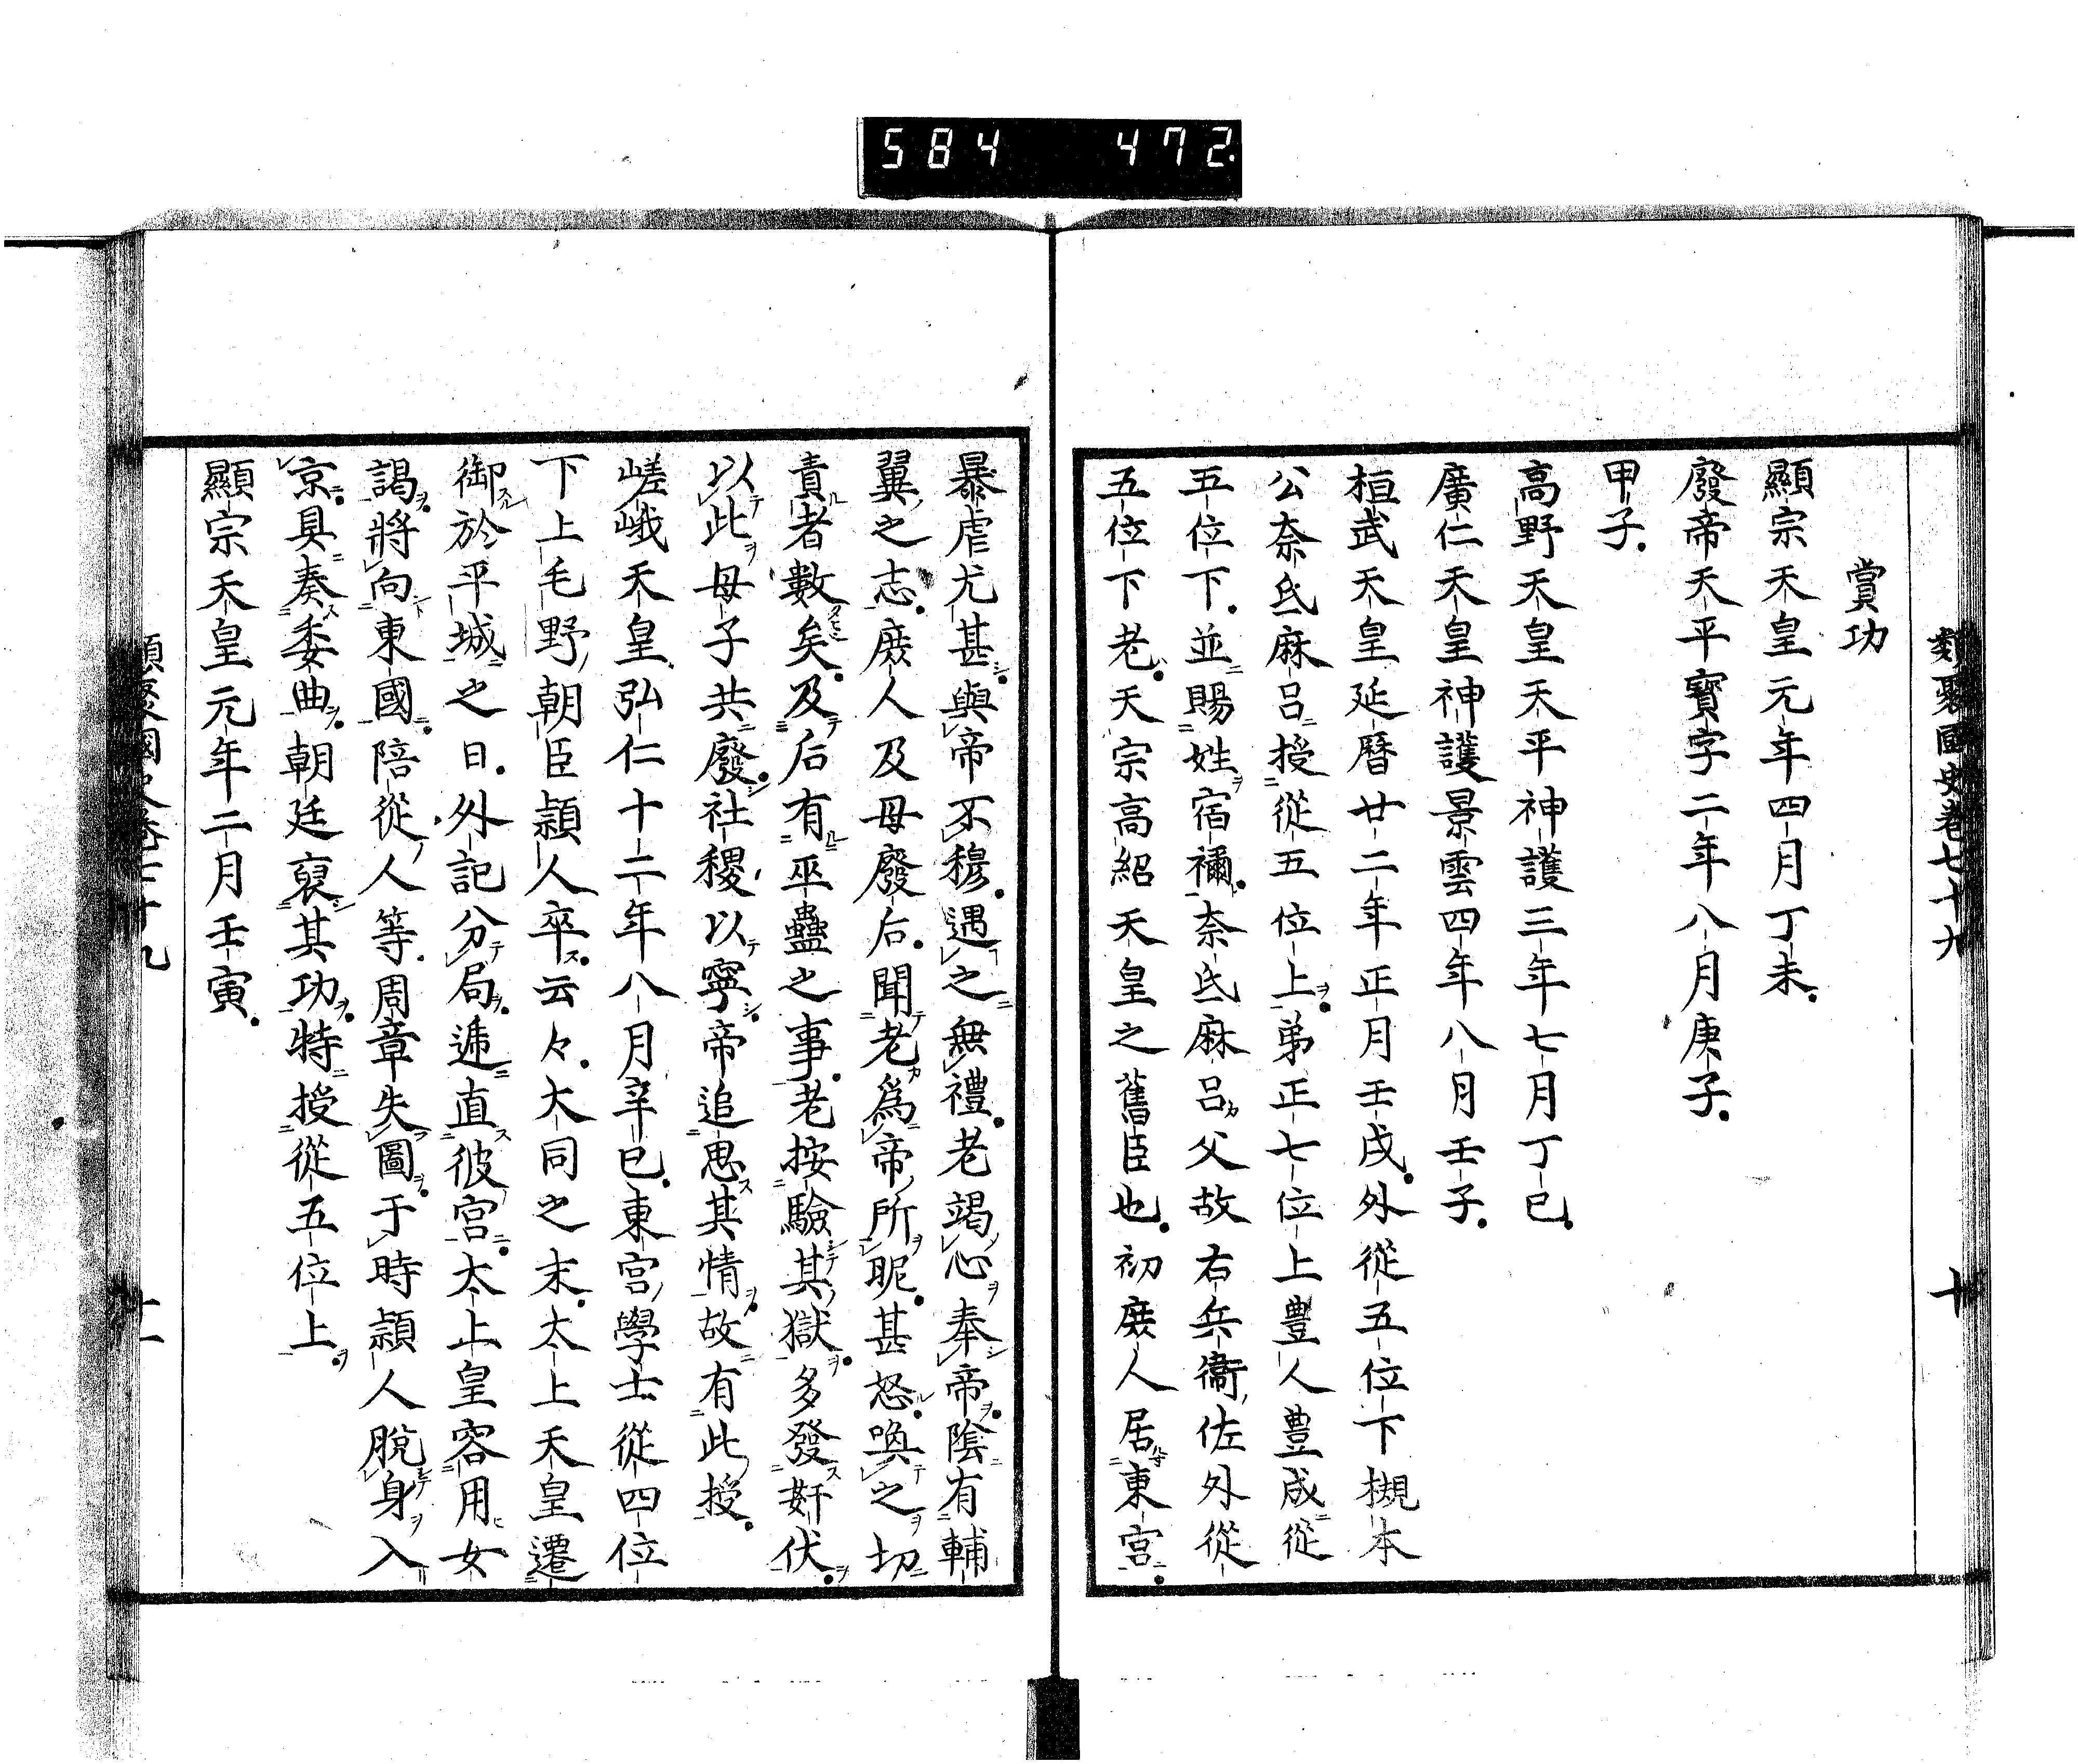 584 472
類聚國史卷七十九 十
賞功
顯宗天皇元年四月丁未
廢帝天平寶字二年八月庚子
甲子
高野天皇天平神護三年七月丁巳
廣仁天皇神護景雲四年八月壬子
桓武天皇延曆廿二年正月壬戌外從五位下槻本
公奈氐麻呂授從五位上弟正七位上豊人豊成從
五位下並賜姓宿禰奈氐麻呂父故右兵衞佐外從
五位下老天宗高紹天皇之舊臣也初庶人居東宮
暴虐尤甚與帝不穆遇之無禮老竭心奉帝陰有輔
翼之志庶人及母廢后聞老爲帝所昵甚怒喚之切
責者數矣及后有巫蠱之事老按驗其獄多發奸伏
以此母子共廢社稷以寧帝追思其情故有此授
嵯峨天皇弘仁十二年八月辛巳東宮學士從四位
下上毛野朝臣頴人卒云々大同之末太上天皇遷
御於平城之日外記分局遞直彼宮太上皇容用女
謁將向東國陪從人等周章失圖于時頴人脫身入
京具奏委曲朝廷裒其功特授從五位上
顯宗天皇元年二月壬寅
類聚國史卷七十九 十一